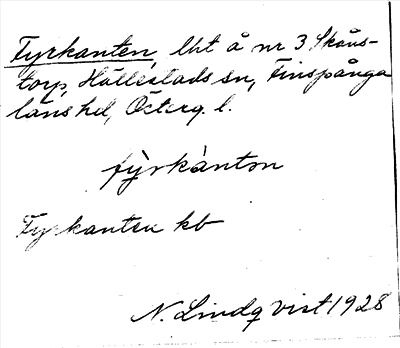 Fyrkanten, lht å nr 3 Skåus-
torp, Hällestads sn, Finspånga
läns hd, Österg. l.
fy̌rkàntən
Fyrkanten kb
N. Lindqvist 1928